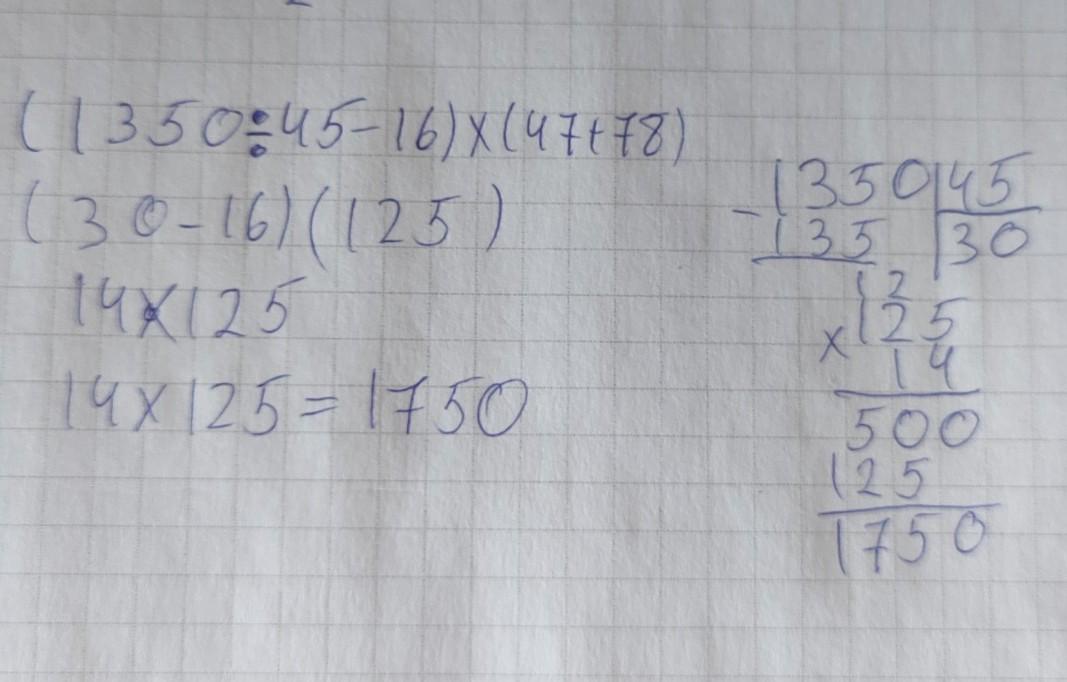 (1350÷45-16)×(47+78)
(30-16)(125)
14×125
14×125=1750
-1350|45
135 |30
12
×125
14
500
125
1750